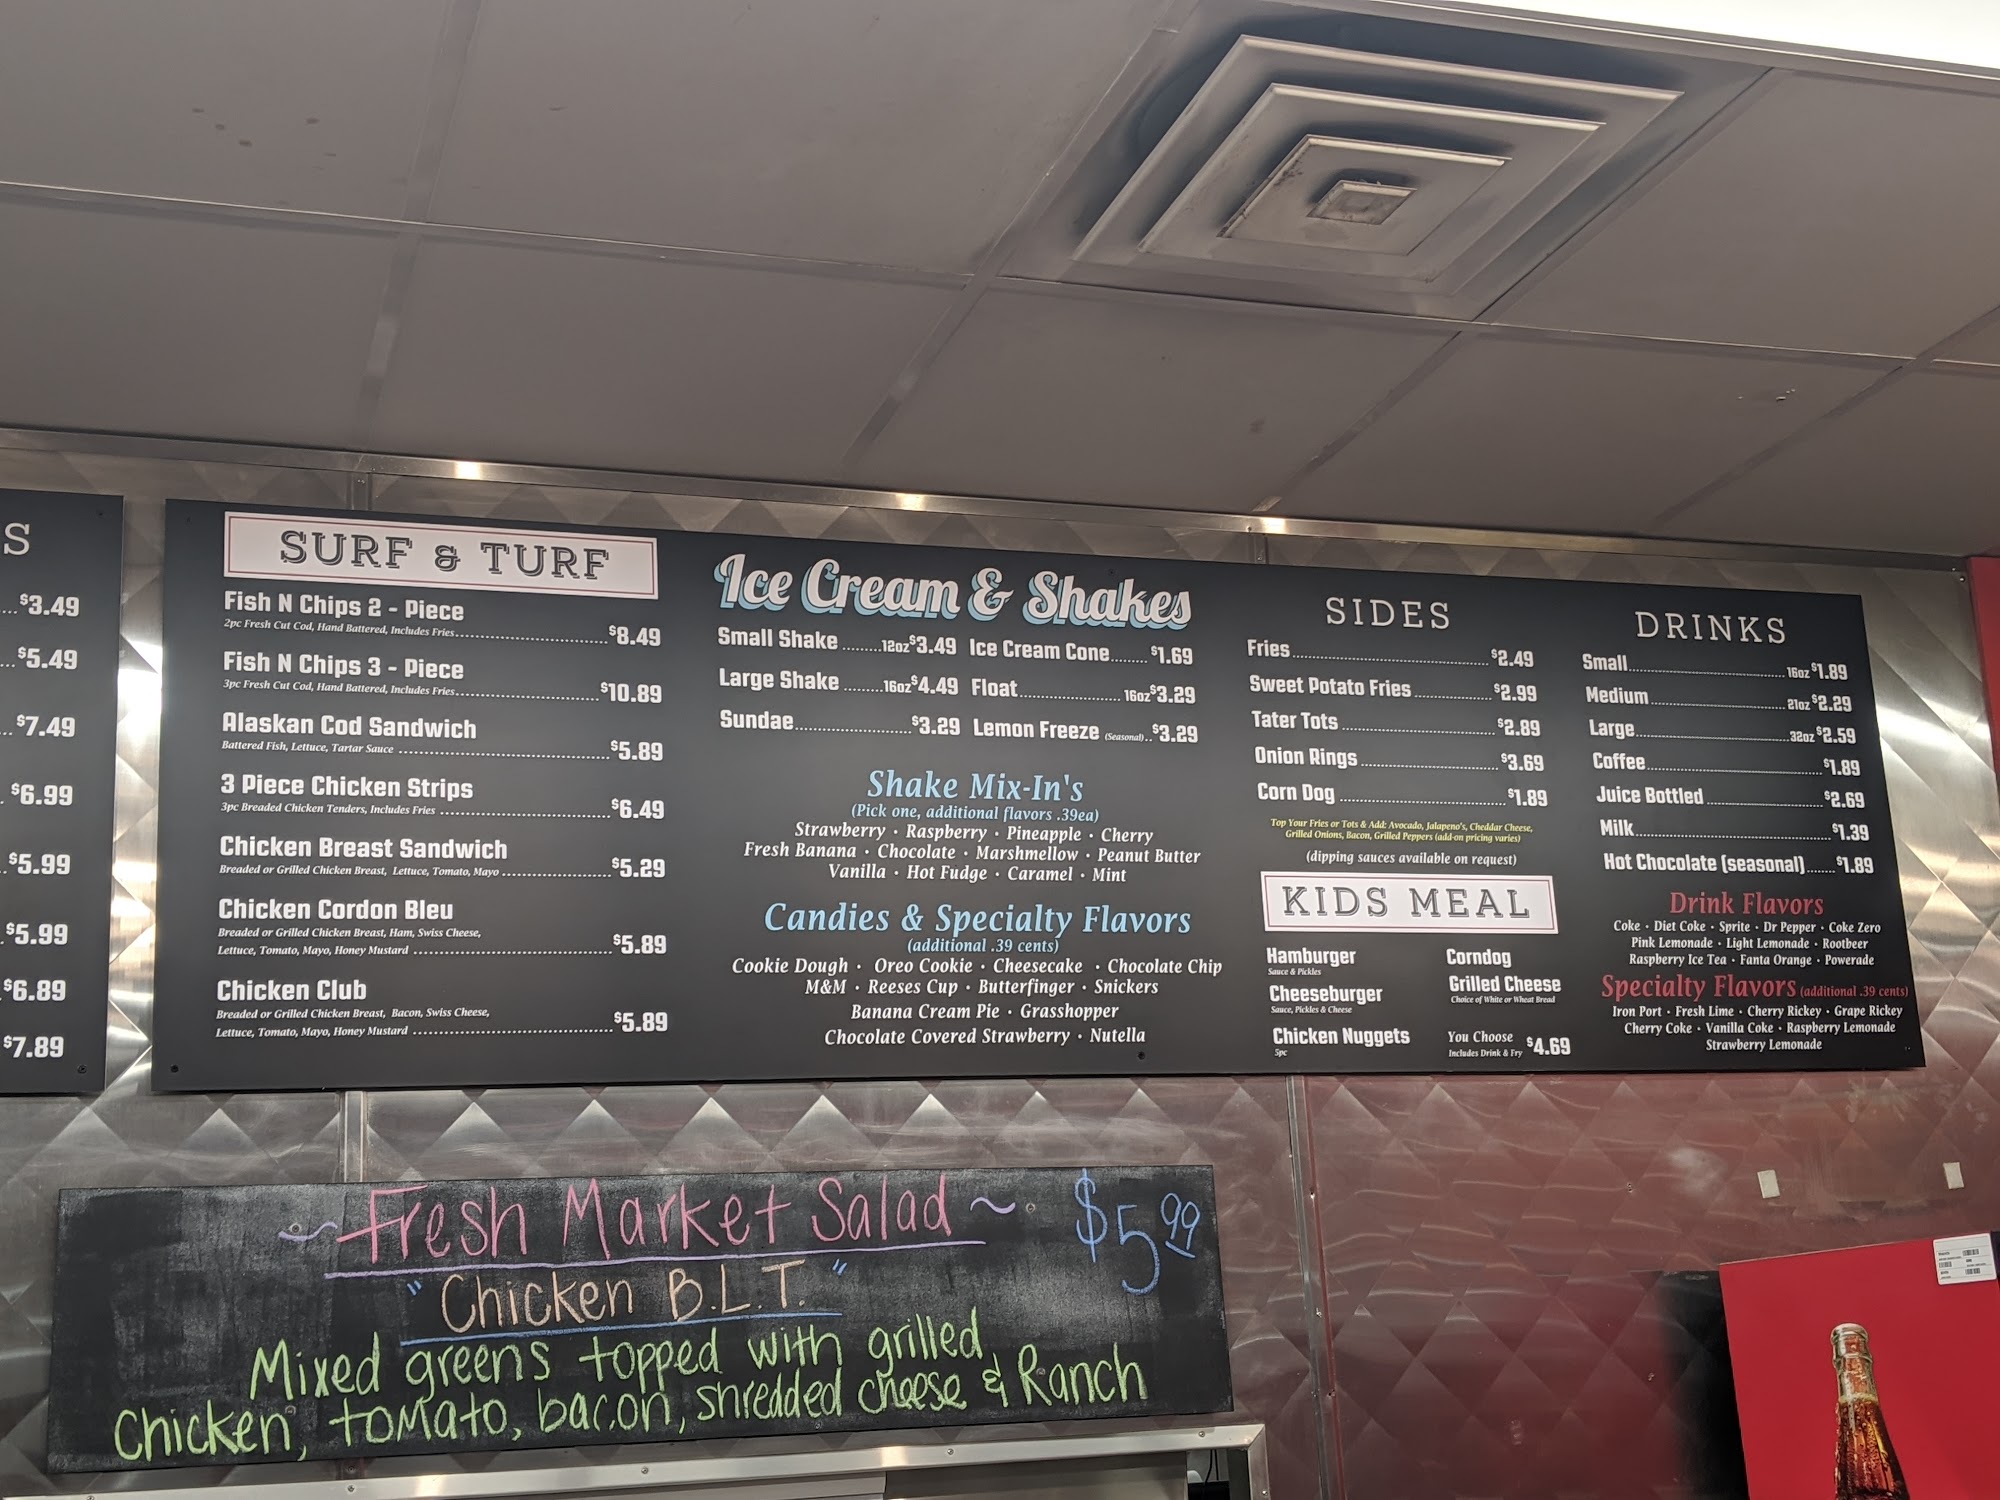 S
$3.49
$5.49
$7.49
$6.99
$5.99
$5.99
$6.89
$7.89
SURF & TURF
Fish N Chips 2 - Piece
2pc Fresh Cut Cod, Hand Battered, Includes Fries $8.49
Fish N Chips 3 - Piece
3pc Fresh Cut Cod, Hand Battered, Includes Fries $10.89
Alaskan Cod Sandwich
Battered Fish, Lettuce, Tartar Sauce $5.89
3 Piece Chicken Strips
3pc Breaded Chicken Tenders, Includes Fries $6.49
Chicken Breast Sandwich
Breaded or Grilled Chicken Breast, Lettuce, Tomato, Mayo $5.29
Chicken Cordon Bleu
Breaded or Grilled Chicken Breast, Ham, Swiss Cheese,
Lettuce, Tomato, Mayo, Honey Mustard $5.89
Chicken Club
Breaded or Grilled Chicken Breast, Bacon, Swiss Cheese,
Lettuce, Tomato, Mayo, Honey Mustard $5.89
Ice Cream & Shakes
Small Shake 12oz $3.49 Ice Cream Cone $1.69
Large Shake 16oz $4.49 Float 16oz $3.29
Sundae $3.29 Lemon Freeze (Seasonal) $3.29
Shake Mix-In's
(Pick one, additional flavors .39ea)
Strawberry · Raspberry · Pineapple · Cherry
Fresh Banana · Chocolate · Marshmellow · Peanut Butter
Vanilla · Hot Fudge · Caramel · Mint
Candies & Specialty Flavors
(additional .39 cents)
Cookie Dough · Oreo Cookie · Cheesecake · Chocolate Chip
M&M · Reeses Cup · Butterfinger · Snickers
Banana Cream Pie · Grasshopper
Chocolate Covered Strawberry · Nutella
SIDES
Fries $2.49
Sweet Potato Fries $2.99
Tater Tots $2.89
Onion Rings $3.69
Corn Dog $1.89
Top Your Fries or Tots & Add: Avocado, Jalapeno's, Cheddar Cheese,
Grilled Onions, Bacon, Grilled Peppers (add-on pricing varies)
(dipping sauces available on request)
KIDS MEAL
Hamburger
Sauce & Pickles
Cheeseburger
Sauce, Pickles & Cheese
Chicken Nuggets
5pc
Corndog
Grilled Cheese
Choice of White or Wheat Bread
You Choose
Includes Drink & Fry $4.69
DRINKS
Small 16oz $1.89
Medium 21oz $2.29
Large 32oz $2.59
Coffee $1.89
Juice Bottled $2.69
Milk $1.39
Hot Chocolate (seasonal) $1.89
Drink Flavors
Coke · Diet Coke · Sprite · Dr Pepper · Coke Zero
Pink Lemonade · Light Lemonade · Rootbeer
Raspberry Ice Tea · Fanta Orange · Powerade
Specialty Flavors (additional .39 cents)
Iron Port · Fresh Lime · Cherry Rickey · Grape Rickey
Cherry Coke · Vanilla Coke · Raspberry Lemonade
Strawberry Lemonade
~ Fresh Market Salad ~ $5.99
"Chicken B.L.T."
Mixed greens topped with grilled
chicken, tomato, bacon, shredded cheese & Ranch